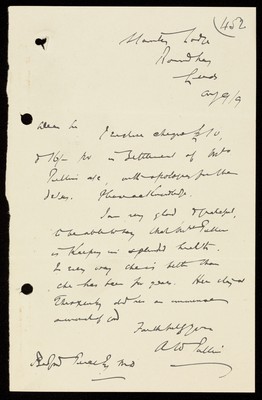 (452
Stanley Lodge
Roundhay
Leeds
Dear Sir I enclose cheque
in Settlement of Mrs
Pullin a/c, with apologies for the
delay. Please acknowledge.
I am very glad & grateful
to be able to say that Mrs Pullin
is keeping in splendid health.
In every way she is better than
she has been for years. Her
Thyroidectomy did her an immense
amount of good
Faithfully yours
A W Pullin